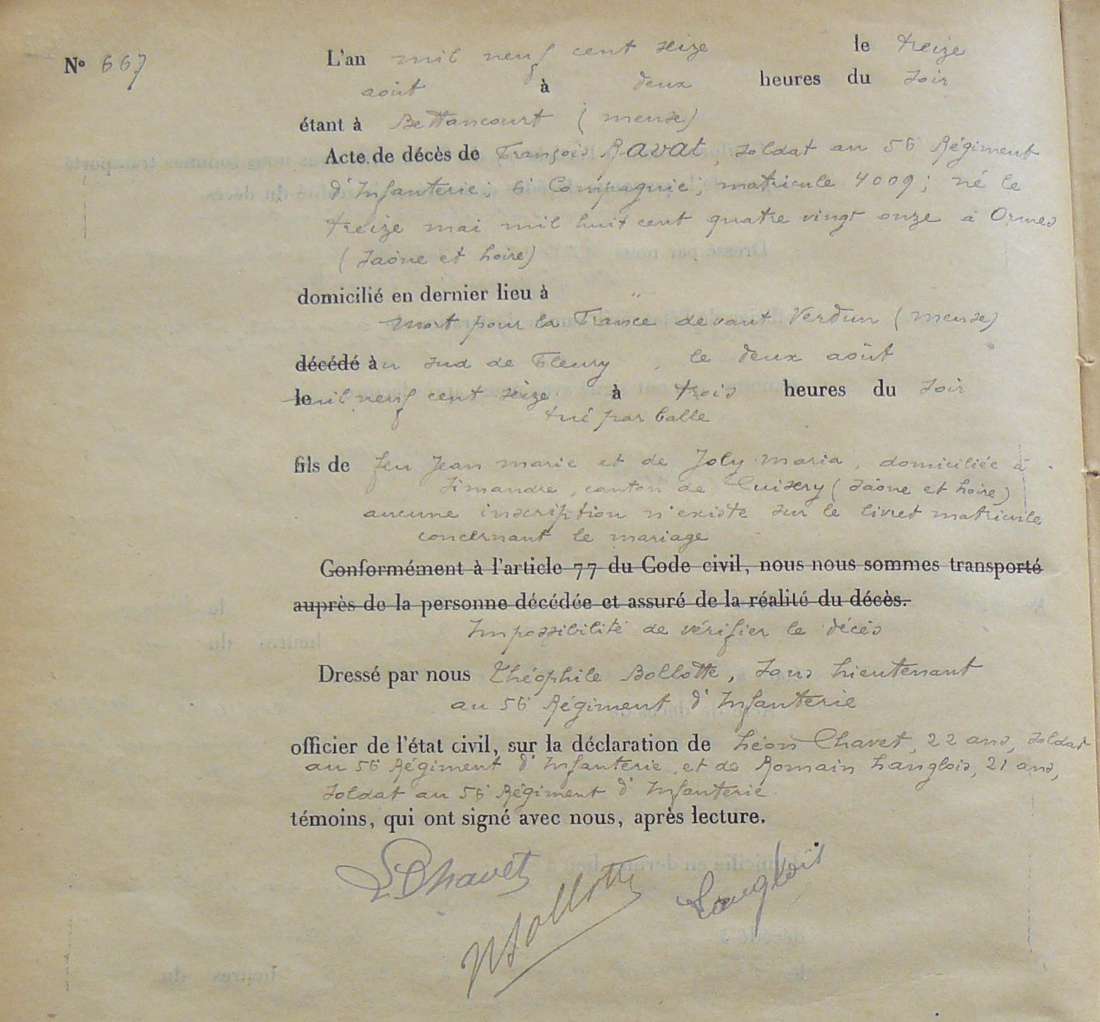 N° 667
L'an mil neuf cent seize le treize
août à deux heures du soir
étant à Bettancourt (meuse)
Acte de décès de François Ravat, soldat au 56 Régiment
d'Infanterie; 6 Compagnie; matricule 4009; né le
treize mai mil huit cent quatre vingt onze à Ormes
(Saône et Loire)
domicilié en dernier lieu à
Mort pour la France devant Verdun (meuse)
décédé àu sud de Fleury, le deux août
le mil neuf cent seize à trois heures du soir
tué par balle
fils de feu Jean marie et de Joly maria, domiciliée à
Simandre, canton de Cuisery (Saône et Loire)
aucune inscription n'existe sur le livret matricule
concernant le mariage
Conformément à l'article 77 du Code civil, nous nous sommes transporté
auprès de la personne décédée et assuré de la réalité du décès.
Impossibilité de vérifier le décès
Dressé par nous Théophile Bollotte, Sous Lieutenant
au 56 Régiment d'Infanterie
officier de l'état civil, sur la déclaration de Léon Chavet, 22 ans, soldat
au 56 Régiment d'Infanterie, et de Romain Langlois, 21 ans,
soldat au 56 Régiment d'Infanterie
témoins, qui ont signé avec nous, après lecture.
LChavet
Bollotte
Langlois